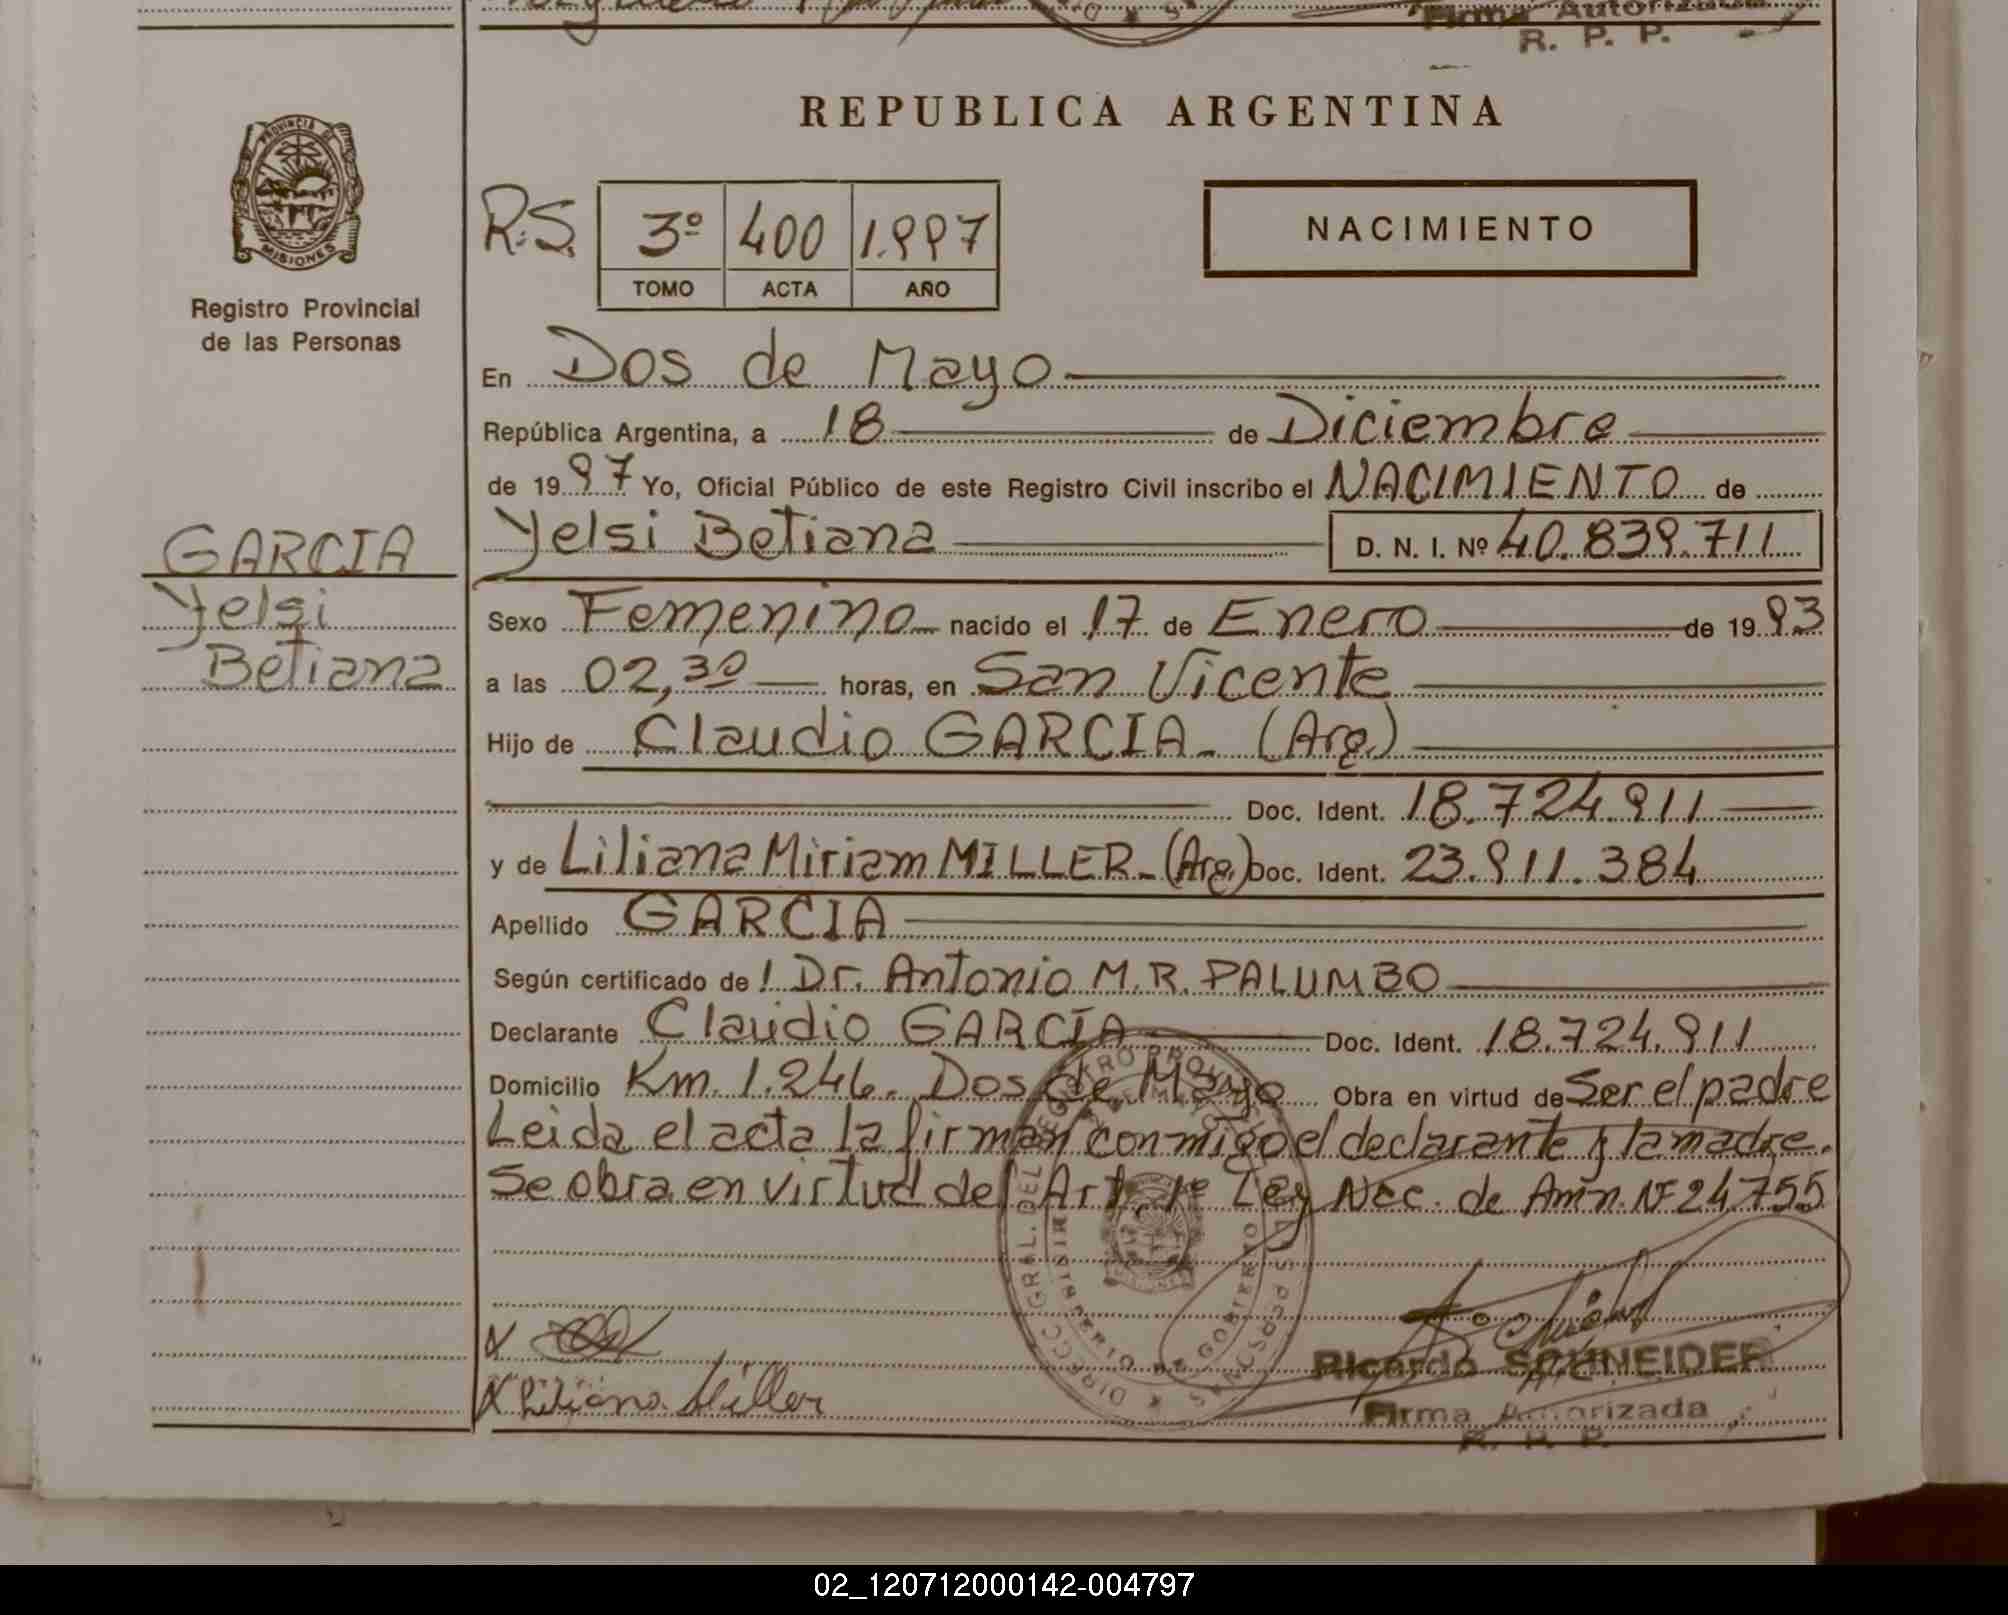 Firma Autorizada
R. P. P.
PROVINCIA DE
MISIONES
Registro Provincial
de las Personas
REPUBLICA ARGENTINA
R.S. 3º 400 1.997
TOMO ACTA AÑO
NACIMIENTO
En Dos de Mayo
República Argentina, a 18 de Diciembre
de 19 97 Yo, Oficial Público de este Registro Civil inscribo el NACIMIENTO de
Yelsi Betiana D. N. I. Nº 40.839.711
GARCIA
Yelsi
Betiana
Sexo Femenino nacido el 17 de Enero de 19 93
a las 02,30 horas, en San Vicente
Hijo de Claudio GARCIA - (Arg.)
Doc. Ident. 18.724.911
y de Liliana Miriam MILLER - (Arg.) Doc. Ident. 23.911.384
Apellido GARCIA
Según certificado de ! Dr. Antonio M.R. PALUMBO
Declarante Claudio GARCÍA Doc. Ident. 18.724.911
Domicilio Km. 1.246. Dos de Mayo Obra en virtud de Ser el padre
Leida el acta la firman conmigo el declarante y la madre.
Se obra en virtud del Art. 1º Ley Nac. de Amn. Nº 24755
X
X Liliana Miller
Ricardo SCHNEIDER
Firma Autorizada
R. P. P.
02_120712000142-004797